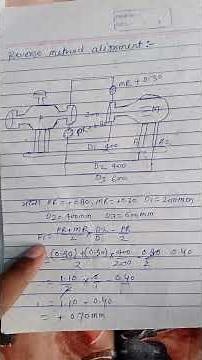 Reverse method alignment:-
MR + 0.30
D2 = 400
D3 = 600
PR = +0.80, MR = +0.30 D1 = 200mm
D2 = 400mm D3 = 600mm
= PR+MR/2 × D2/D1 - PR/2
= (0.80)+(0.30)/2 × 400/200 - 0.80/2 0.40
= 1.10/2 × - 0.40
= 1.10 - 0.40
= + 0.70mm